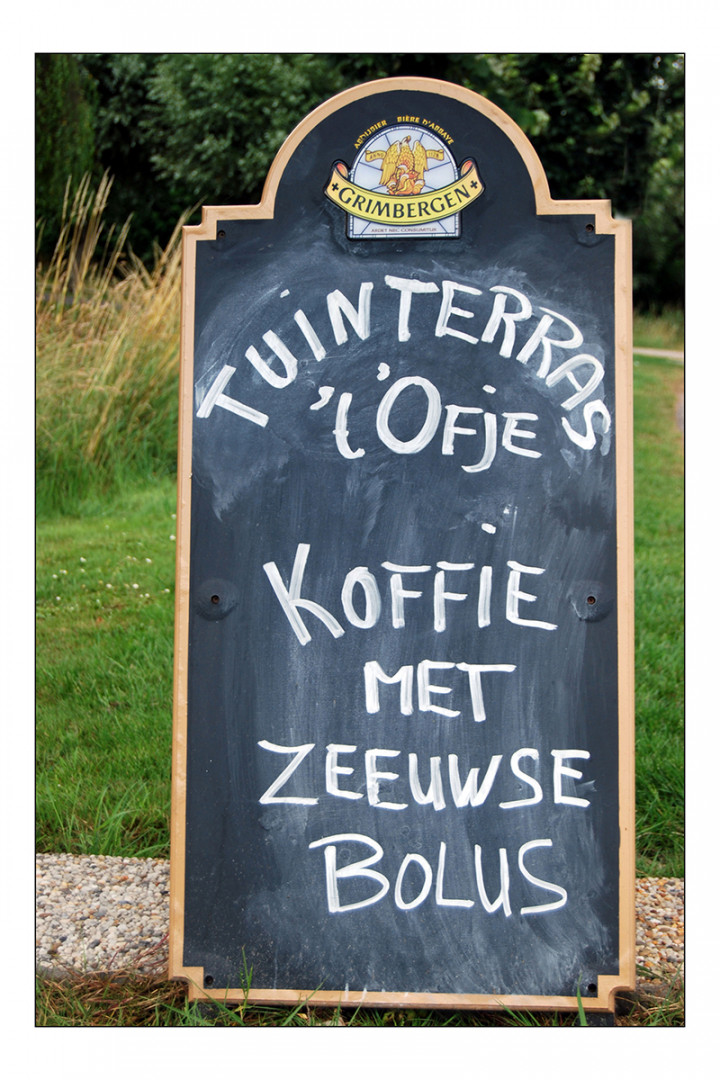 ABDIJBIER BIÈRE D'ABBAYE
GRIMBERGEN
ARDET NEC CONSUMITUR
TUINTERRAS
't 'OFje
KOFFIE
MET
ZEEUWSE
BOLUS